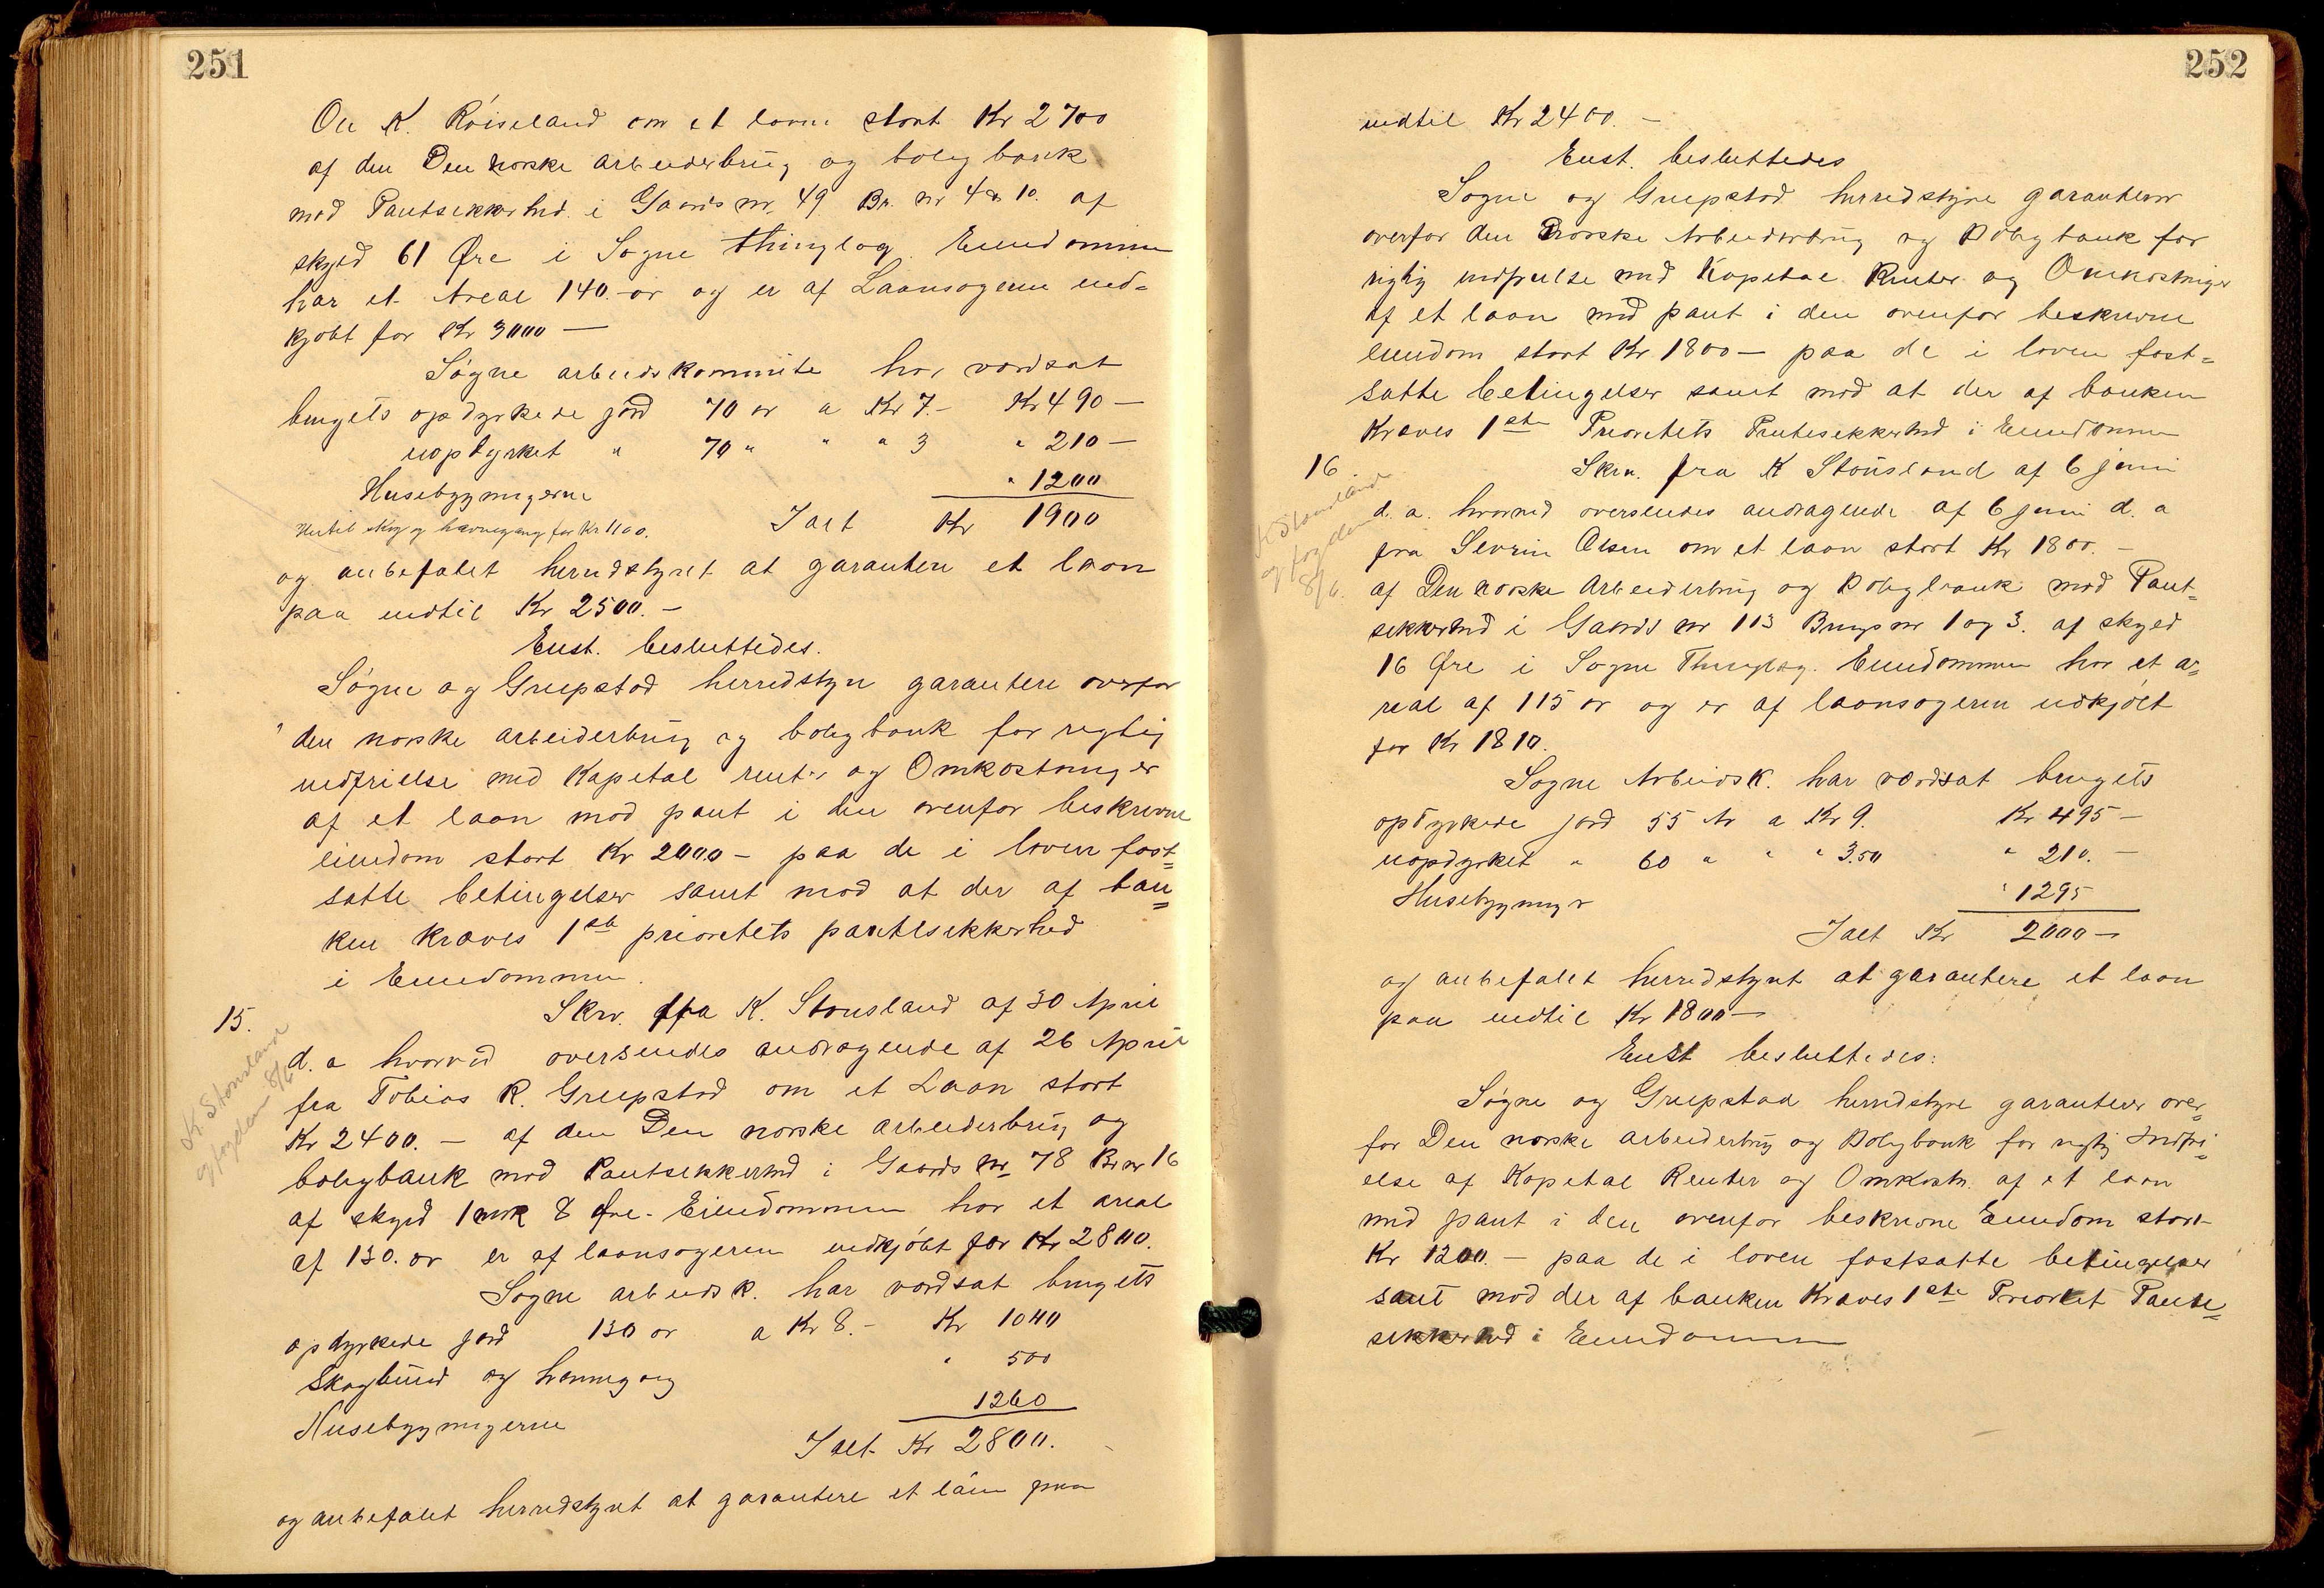 251
Ole K. Röiseland om et laan stort Kr 2700
af den Den norske arbeiderbrug og boligbank
mod Pantsikkerhed i Gaards nr. 49 Br. nr 4 & 10. af
skyld 61 Øre i Søgne thinglag. Eiendommen
har et Areal 140.- ar og er af Laansøgeren ind=
kjøbt for Kr 3000 —
Søgne arbeidskommite har værdsat
brugets opdyrkede jord 70 ar a Kr 7.- Kr 490 —
uopdyrket " 70 " " " 3 " 210 —
Husebygningerne " 1200
Hertil skog og havnegang for Kr 1100. Ialt Kr 1900
og anbefalet herredstyret at garantere et laan
paa indtil Kr 2500. —
Enst. besluttedes.
Søgne og Greipstad herredstyre garanterer overfor
den norske arbeiderbrug og boligbank for rigtig
indfrielse med Kapital renter og Omkostninger
af et laan mod pant i den ovenfor beskrevne
eiendom stort Kr 2000 — paa de i loven fast=
satte betingelser samt mod at der af ban=
ken kræves 1ste prioritets pantesikkerhed
i Eiendommen.
15. Skr. fra K. Stousland af 30 April
K. Stousland
og fogden 8/6
d. a hvorved oversendes andragende af 26 April
fra Tobias R. Greipstad om et Laan stort
Kr 2400. — af den Den norske arbeiderbrug og
boligbank mod Pantsikkerhed i Gaards nr 78 Br nr 16
af skyld 1 mrk 8 Øre. Eiendommen har et areal
af 130. ar er af laansøgeren indkjøbt for Kr 2800.
Søgne arbeidsk. har værdsat brugets
opdyrkede jord 130 ar a Kr 8.- Kr 1040
Skogbund og havnegang " 500
Husebygningerne 1260
Ialt Kr 2800.
og anbefalet herredstyret at garantere et laan paa
252
indtil Kr 2400. —
Enst. besluttedes
Søgne og Greipstad herredstyre garanterer
overfor den norske Arbeiderbrug og Boligbank for
rigtig indfrielse med Kapital Renter og Omkostninger
af et laan mod pant i den ovenfor beskrevne
eiendom stort Kr. 1800 — paa de i loven fast=
satte betingelser samt mod at der af banken
Kræves 1ste Prioritets Pantesikkerhed i Eiendommen
16. Skr. fra K Stousland af 6 juni
K Stousland
og fogden
8/6.
d. a. hvorved oversendes andragende af 6 juni d. a
fra Sevrin Olsen om et laan stort Kr 1800. —
af Den norske Arbeiderbrug og Boligbank mod Pant=
sikkerhed i Gaards nr 113 Brugs nr 1 og 3. af skyld
16 Øre i Søgne Thinglag. Eiendommen har et a=
real af 115 ar og er af laansøgeren indkjøbt
for Kr 1810.
Søgne Arbeidsk. har værdsat brugets
opdyrkede jord 55 Ar a Kr 9. Kr 495 —
uopdyrket " 60 " " " 3.50 " 210. —
Husebygninger " 1295
Ialt Kr 2000 —
og anbefalet herredstyret at garantere et laan
paa indtil Kr 1800 —
Enst besluttedes:
Søgne og Greipstad herredstyre garanterer over=
for Den norske arbeiderbrug og Boligbank for rigtig Indfri=
else af Kapital Renter og Omkostn. af et laan
med pant i den ovenfor beskrevne Eiendom stort
Kr 1200. — paa de i loven fastsatte betingelser
samt mod der af banken Kræves 1ste Prioritet Pante=
sikkerhed i Eiendommen